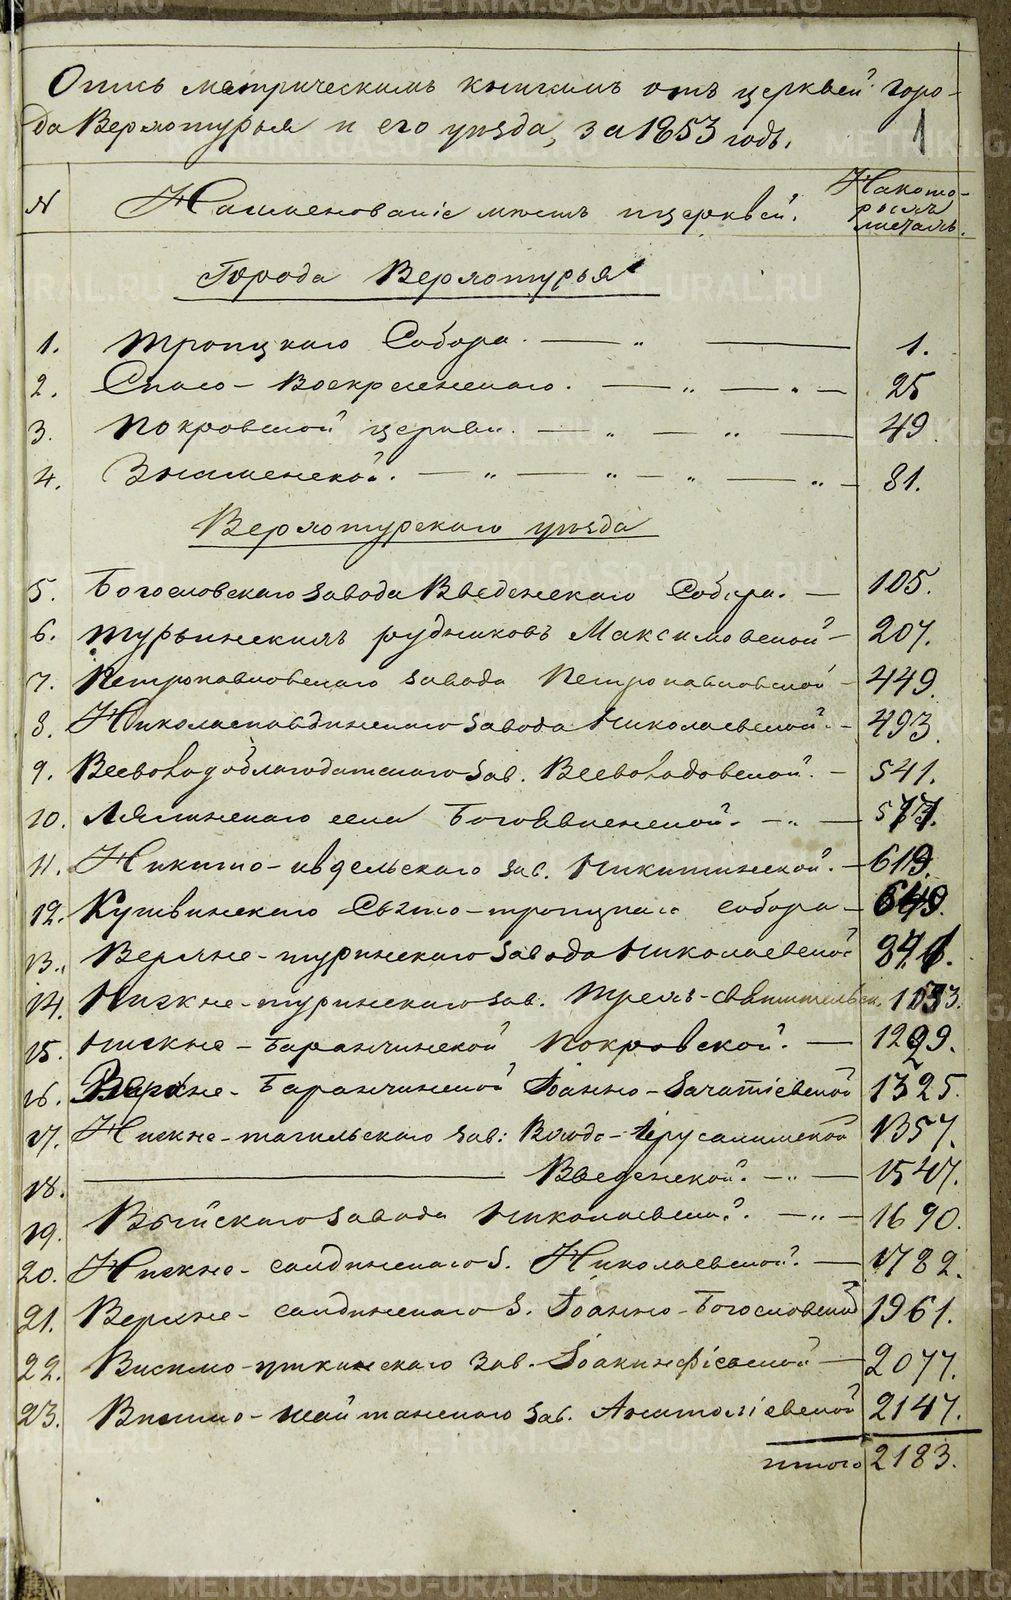 Опись метрическимъ книгамъ отъ церквей горо-
да Верхотурья и его уѣзда, за 1853 годъ.
1
№
Наименованіе мѣстъ и церквей.
На кото-
рыхъ
листахъ.
Города Верхотурья
1. Троицкаго Собора. 1.
2. Спасо-Воскресенскаго. 25
3. Покровской церкви. 49
4. Знаменской. 81.
Верхотурскаго уѣзда
5. Богословскаго завода Введенскаго Собора. 105.
6. Турьинскихъ рудниковъ Максимовской 207.
7. Петропавловскаго завода Петропавловской 449.
8. Николаепавдинскаго завода Николаевской. 493.
9. Всеволодоблагодатскаго зав. Всеволодовской. 541.
10. Лялинскаго села Богоявленской. 577.
11. Никито-ивдельскаго зав. Никитинской. 619.
12. Кушвинскаго Свято-троицкаго собора 649.
13. Верхне-туринскаго завода Николаевской
14. Нижне-туринскаго зав. Трехъ-святительск. 1033.
15. Нижне-Баранчинской Покровской. 1299.
16. Верхне-Баранчинской Іоанно-Зачатіевской 1325.
17. Нижне-тагильскаго зав: Входо-Іерусалимской 1357.
18. Введенской. 1547.
19. Выйскаго завода Николаевской. 1690.
20. Нижне-салдинскаго з. Николаевской. 1782.
21. Верхне-салдинскаго з. Іоанно-Богословской 1961.
22. Висимо-уткинскаго зав. Іоакинфіевской 2077.
23. Висимо-шайтанскаго зав. Анатоліевской 2147.
итого 2183.
METRIKI.GASO-URAL.RU